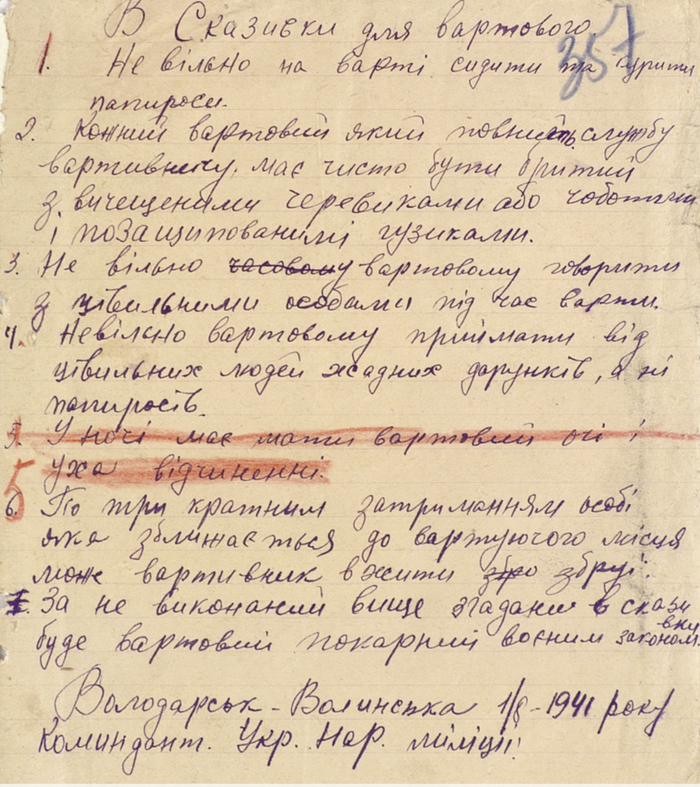 В Сказивки для вартового
357
1. Не вільно на варті сидити та курити
папироси.
2. Кожний вартовий який повнить службу
вартивничу, має чисто бути бритий
з вичещеними черевиками або чоботами
і позащипованимі гузиками.
3. Не вільно часовому вартовому говорити
з цівильними особами під час варти.
4. Невільно вартовому приймати від
цівильних людей жадних дарунків, а ні
папиросів.
5. У ночі має мати вартовий очі і
уха відчиненні.
5
6. По три кратним затриманням особі
яка зближається до вартуючого місця
може вартивник вжити збро збруї.
7. За не виконаний вище згадани в скази
вки
буде вартовий покарний воєним законом.
Володарськ-Волинська 1/8-1941 року
Коминдант. Укр. Нар. міліції: